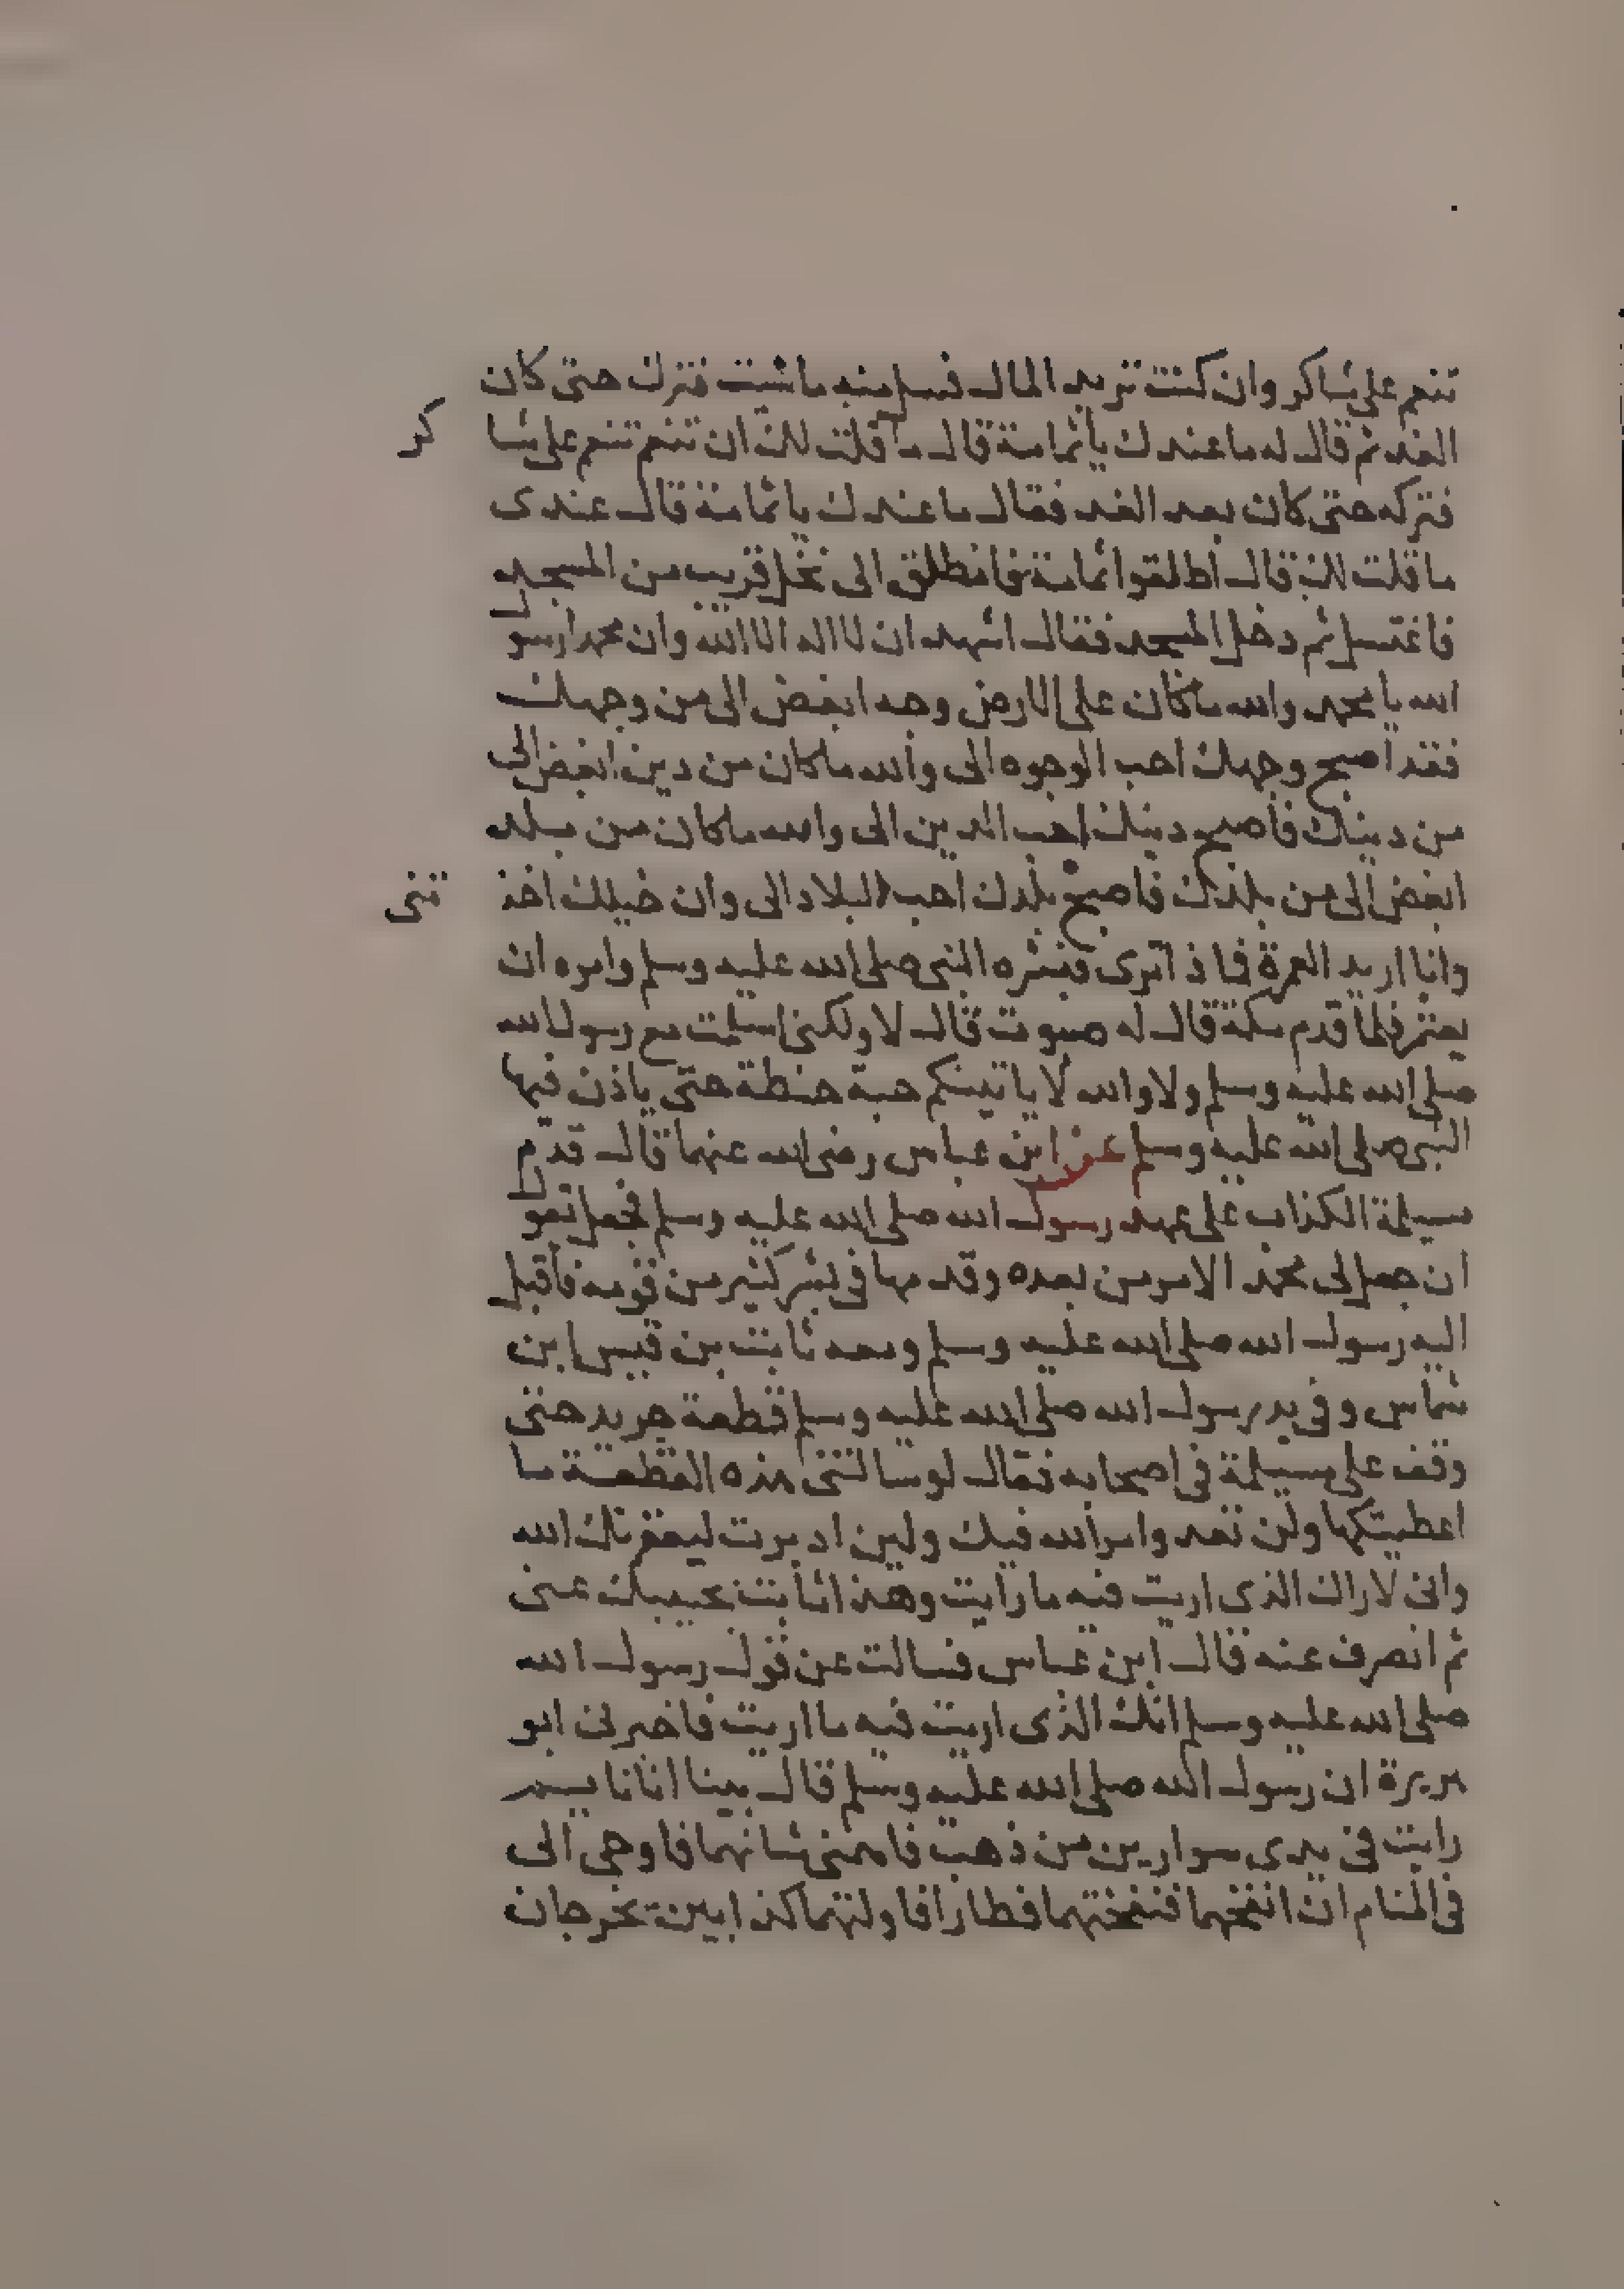 تنعم على شاكر وان كنت تريد المال فسل منه ما شئت فترك حتى كان
الغد ثم قال له ما عندك يا ثمامة قال ما قلت لك ان تنعم تنعم على شا
كر
فتركه حتى كان بعد الغد فقال ما عندك يا ثمامة قال عندى
ما قلت لك قال اطلقوا ثمامة فانطلق الى نخل قريب من المسجد
فاغتسل ثم دخل المسجد فقال اشهد ان لا اله الا الله وان محمدا رسول
الله يا محمد والله ما كان على الارض وجه ابغض الى من وجهك
فقد اصبح وجهك احب الوجوه الى والله ما كان من دين ابغض الى
من دينك فاصبح دينك احب الدين الى والله ما كان من بلد
ابغض الى من بلدك فاصبح بلدك احب البلاد الى وان خيلك اخذ
تنى
وانا اريد العمرة فماذا ترى فبشره النبى صلى الله عليه وسلم وامره ان
يعتمر فلما قدم مكة قال له صبوت قال لا ولكن اسلمت مع رسول الله
صلى الله عليه وسلم ولا والله لا ياتيتكم حبة حنطة حتى ياذن فيها
النبى صلى الله عليه وسلم عن ابن عباس رضى الله عنهما قال قدم
مسيلمة الكذاب على عهد رسول الله صلى الله عليه وسلم فجعل يقول
ان جعل لى محمد الامر من بعده وقدمها فى بشر كثير من قومه فاقبل
اليه رسول الله صلى الله عليه وسلم ومعه ثابت بن قيس ابن
شماس وفى يد رسول الله صلى الله عليه وسلم قطعة جريد حتى
وقف على مسيلمة فى اصحابه فقال لو سالتنى هذه القطعة ما
اعطيتكها ولن تعد وامر الله فيك ولين ادبرت ليعقرنك الله
وانى لاراك الذى اريت فيه ما رايت وهذا ثابت يجيبك عنى
ثم انصرف عنه قال ابن عباس فسالت عن قول رسول الله
صلى الله عليه وسلم انك الذى اريت فيه ما اريت فاخبرنى ابو
هريرة ان رسول الله صلى الله عليه وسلم قال بينا انا نايم
رايت فى يدى سوارين من ذهب فاهمنى شانهما فاوحى الى
فى المنام ان انفخهما فنفختهما فطارا فاولتهما كذابين يخرجان